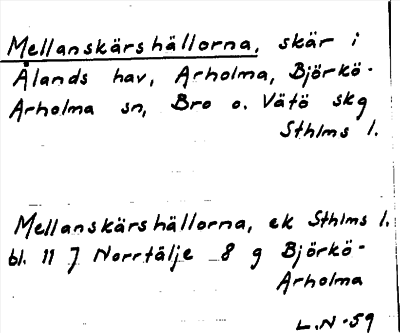 Mellanskärshällorna, skär i
Ålands hav, Arholma, Björkö-
Arholma sn, Bro o. Vätö skg
Sthlms l.
Mellanskärshällorna, ek Sthlms l.
bl. 11 J Norrtälje 8 g Björkö-
Arholma
L.N-59